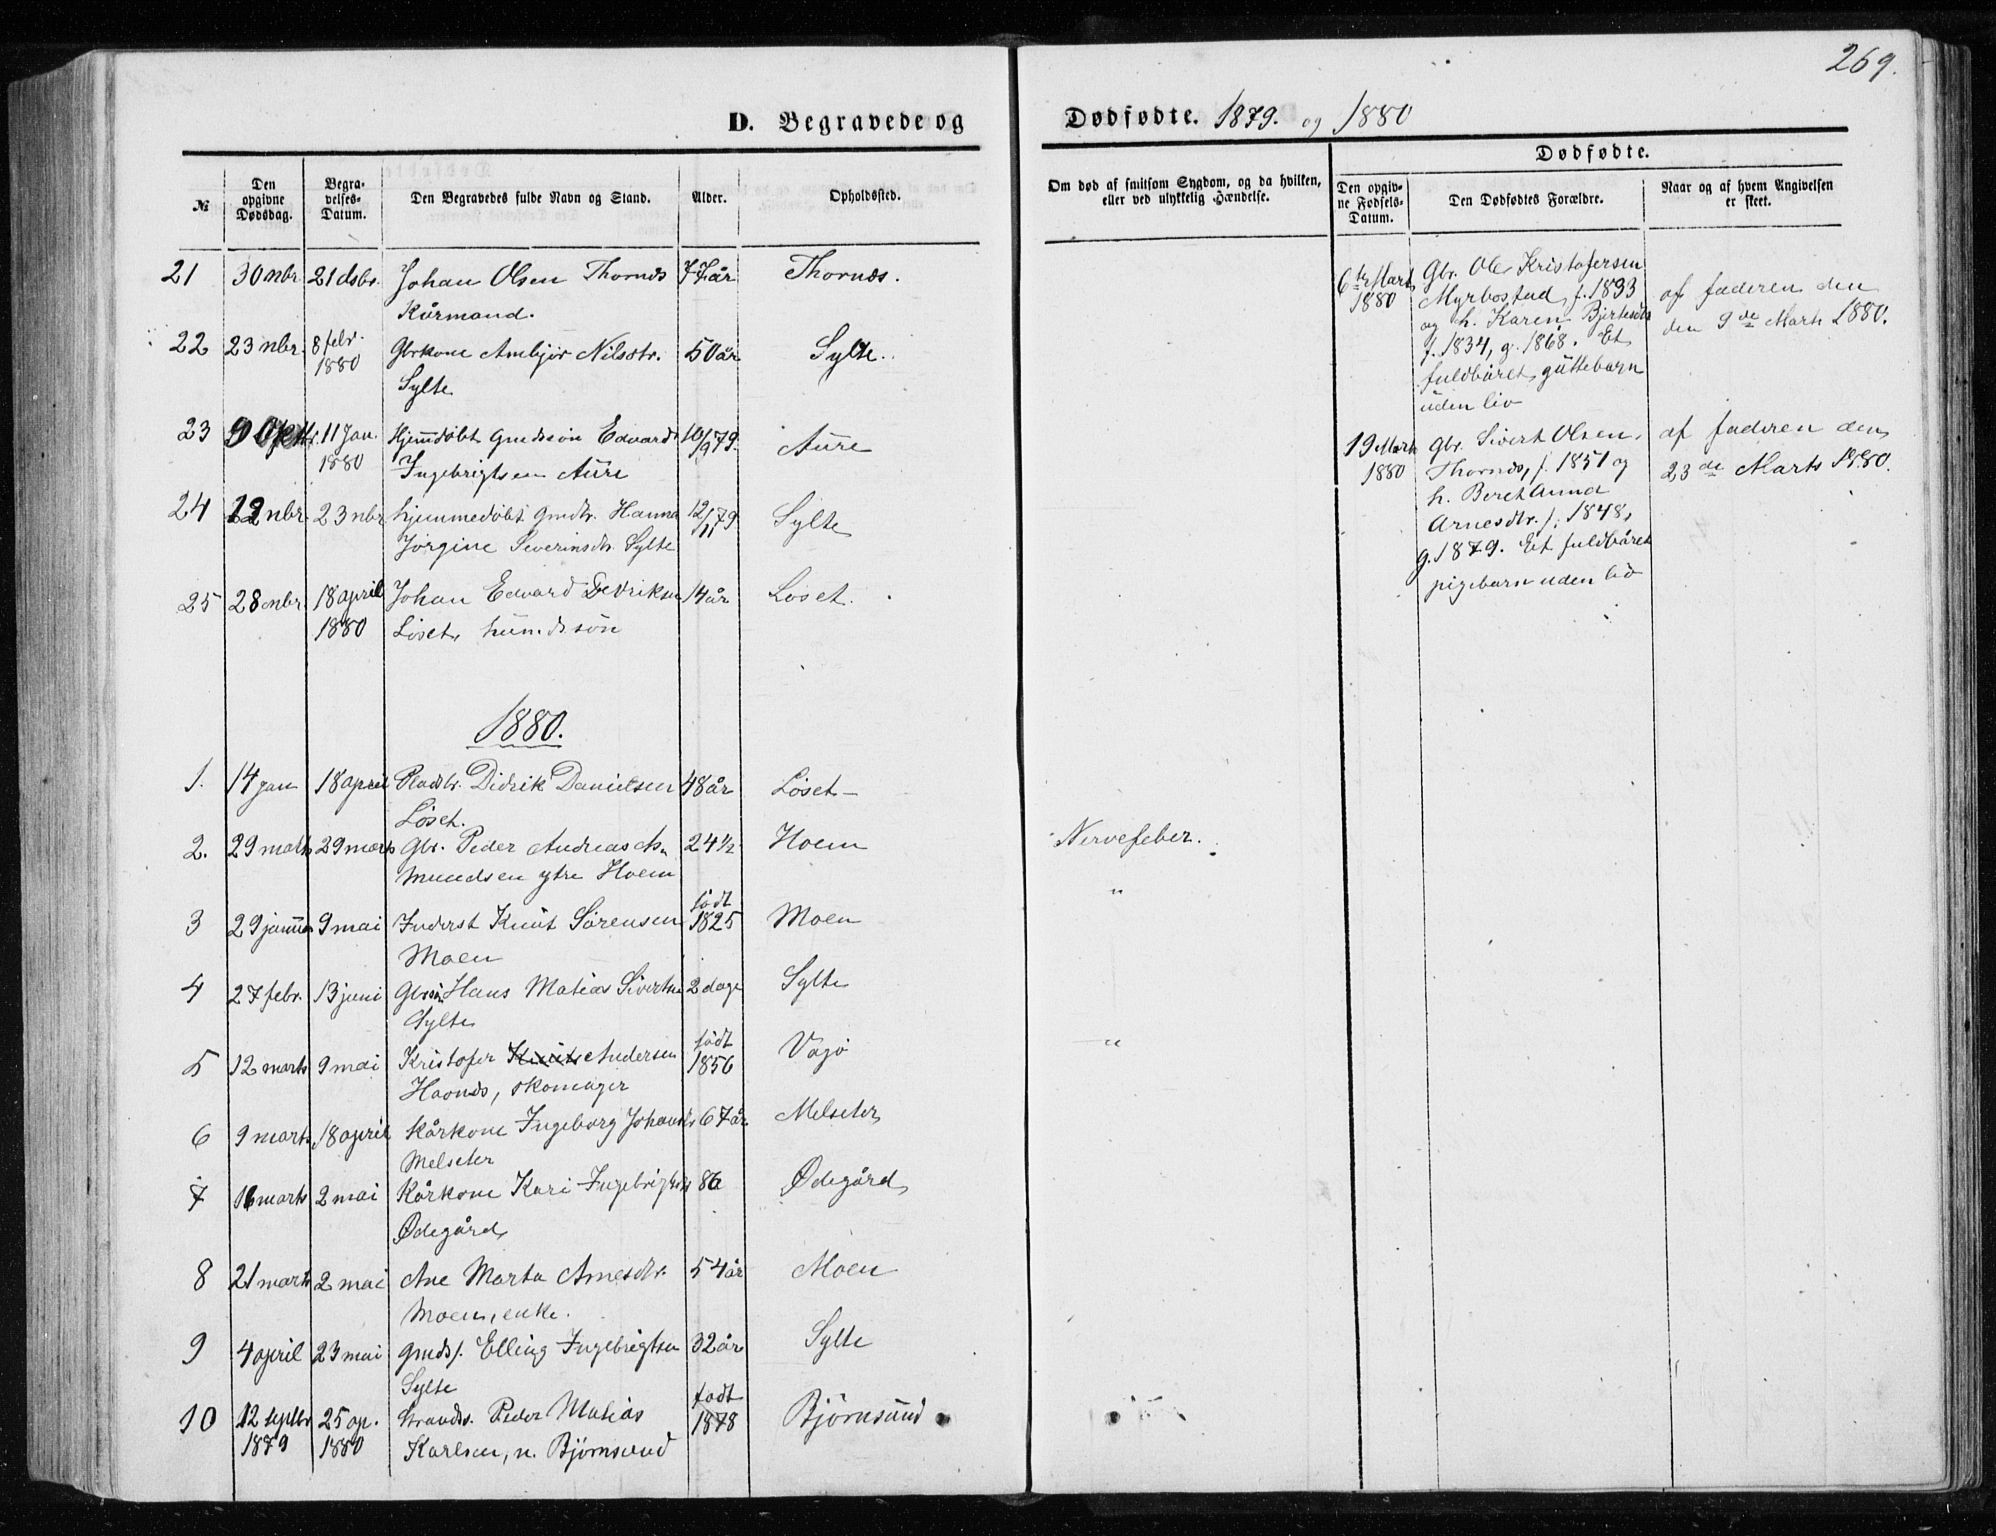 269.
D. Begravede og Dødfødte. 1879. og 1880
№
Den opgivne Dødsdag.
Begravelses-Datum.
Den Begravedes fulde Navn og Stand.
Alder.
Opholdssted.
Om død af smitsom Sygdom, og da hvilken, eller ved ulykkelig Hændelse.
Dødfødte.
Den opgivne Fødsels-Datum.
Den Dødfødtes Forældre.
Naar og af hvem Angivelsen er skeet.
21 30 nbr. 21 dsbr. Johan Olsen Thornes 77 år Thornes.
Kårmand.
22 23 nbr. 8 febr. 1880 Gbrkone Anbjør Nilsdtr. 50 år Sylte.
Sylte
23 9 Oktr. 11 Jan. 1880 Hjemdøbt gmdssøn Edvard 10/9 79. Aure
Ingebrigtsen Aure
24 12 nbr. 23 nbr hjemmedøbt gmdtr. Hanna 12/11 79. Sylte
Jørgine Severinsdtr. Sylte
25 28 nbr. 18 april 1880 Johan Edvard Dedriksen 14 år Løset.
Løset, husmdssøn
6te Marts 1880
Gbr. Ole Kristofersen
Myrbostad, f. 1833
og h. Karen Bjertesdtr.
f. 1834, g. 1868. Et
fuldbåret guttebarn
uden liv
af faderen den
den 9de Marts 1880.
19 Marts 1880
gbr. Sivert Olsen
Thornes, f. 1851 og
h. Beret Anna
Arnesdtr. f. 1848,
g. 1879. Et fuldbåret
pigebarn uden liv
af faderen den
23de Marts 1880.
1880.
1. 14 jan 18 april Pladsbr. Didrik Danielsen 48 år Løset
Løset.
2. 29 marts 29 marts Gbr. Peder Andreas As- 24 1/2 Hoem Nervefeber.
mundsen ytre Hoem
3 29 januar 9 mai Inderst Knut Sørensen født 1825 Moen "
Moen
4 27 febr. 13 juni Gbrsøn Hans Matias Sivertsen 2 dage Sylte
Sylte
5 12 marts 9 mai Kristofer Andersen født 1856 Vågø "
Haonæs, skomager
6 9 marts 18 april Kårkone Ingeborg Johansdtr 67 år Melseter
Melseter
7 16 marts 2 mai Kårkone Kari Ingebrigtsdtr 86 Ødegård
Ødegård
8 21 marts 2 mai Ane Marta Arnesdtr. 54 år Moen
Moen, enke.
9 4 april 23 mai gmds/. Elling Ingebrigtsen 32 år Sylte
Sylte
10 12 septbr 1879 25 ap. 1880 Strands. Peder Matias født 1878 Bjørnsund
Karlsen, n. Bjørnsund